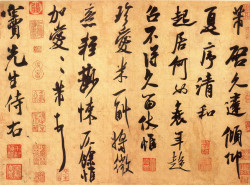 芾啓久違傾仰
夏序清和
起居何如衰年趨
召不得久留伏惟
珍愛米一斛將微
意輕尠悚仄餘惟
加愛〻芾頓首
竇先生侍右